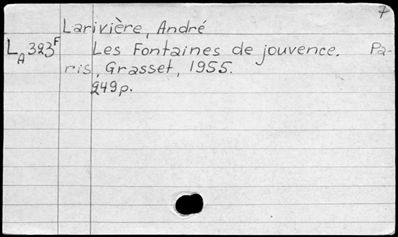 7
Larivière, André
LA 323F Les Fontaines de jouvence. Pa-
ris, Grasset, 1955.
249p.